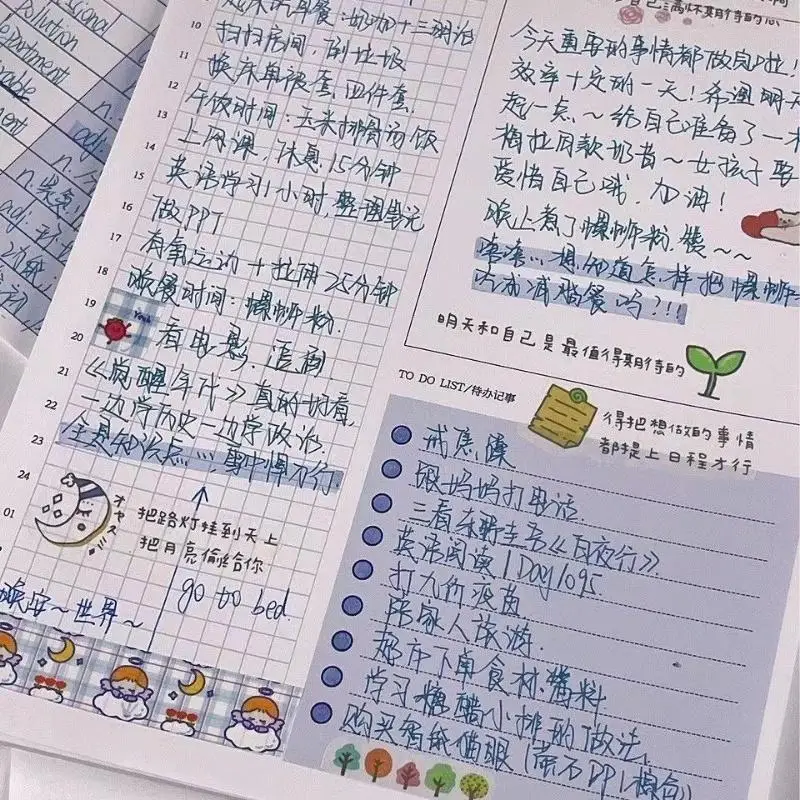 ssional
Pollution
Department
n.
adj.
10
11
12
13
14
15
16
17
18
19
20
21
22
23
24
01
扫扫房间,倒垃圾
换床单被套,四件套.
午饭时间:玉米排骨汤饭
上网课,休息15分钟
英语学习1小时,整理笔记
做PPT
有氧运动+拉伸25分钟
晚餐时间:螺蛳粉.
看电影.追剧
《觉醒年代》真的好看,
一边学历史一边学政治.
全是知识点
オヤスミ
把路灯娃到天上
把月亮偷给你
晚安~世界~
go to bed.
今天重要的事情都做完啦!
效率十足的一天!希望明天
起一点~给自己准备了一
同款奶昔~女孩子要
爱惜自己哦,加油!
晚上煮了螺蛳粉,嘿~~
想知道怎样把螺蛳
吃成减脂餐吗?!!!
明天和自己是最值得期待的
TO DO LIST/待办记事
得把想做的事情
都提上日程才行
戒焦躁
跟妈妈打电话.
三看东野圭吾《白夜行》
英语阅读1Day/095
打九价疫苗
陪家人旅游.
超市下单食材、酱料
学习糖醋小排的做法、
购买